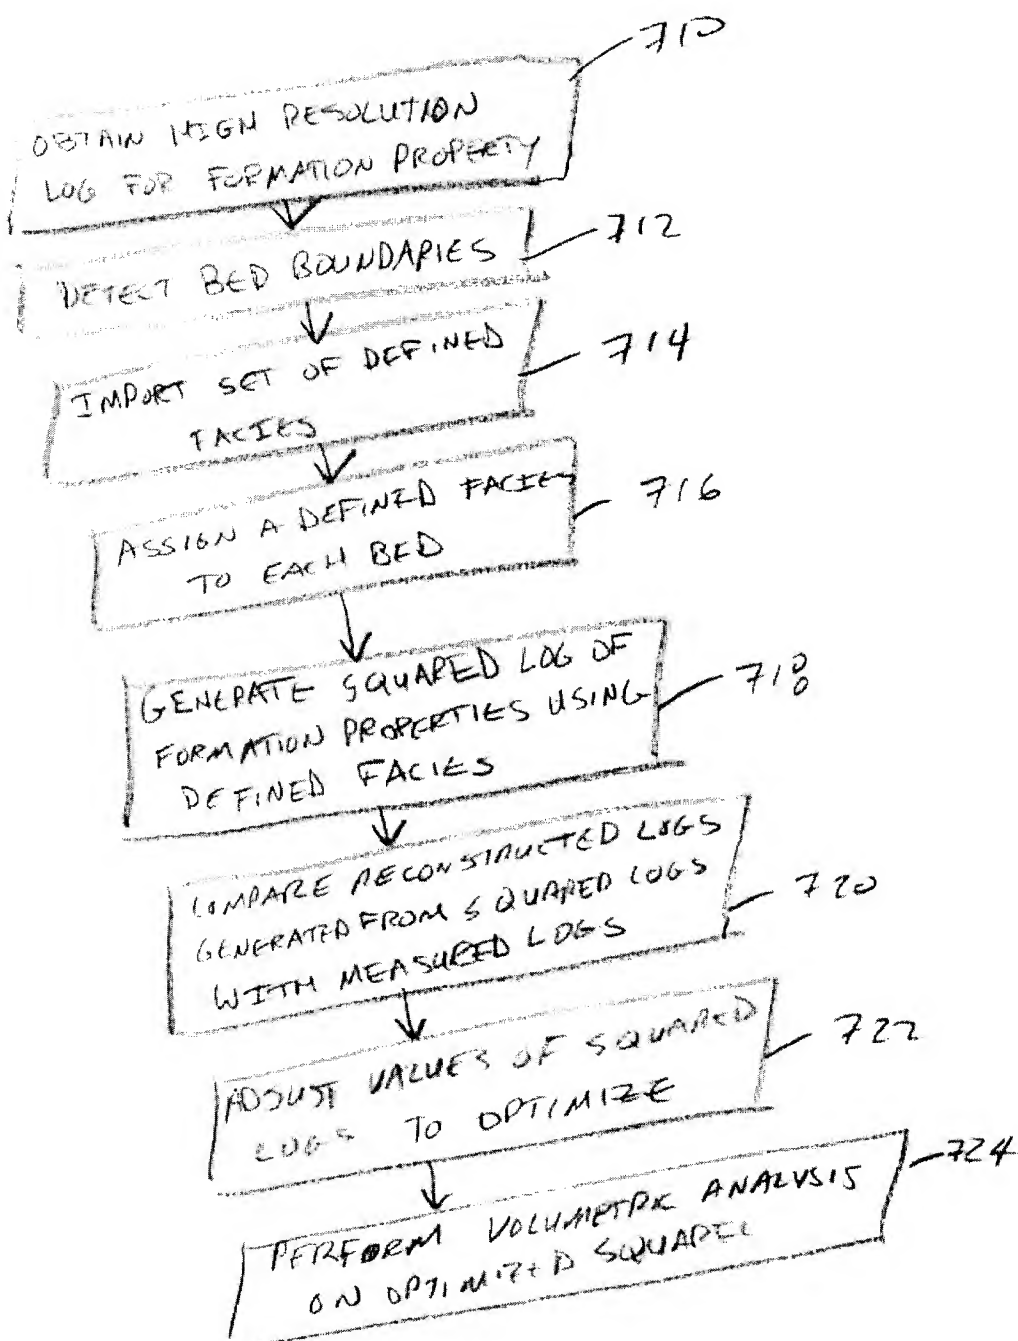 710
OBTAIN HIGH RESOLUTION
LOG FOR FORMATION PROPERTY
712
DETECT BED BOUNDARIES
714
IMPORT SET OF DEFINED
FACIES
716
ASSIGN A DEFINED FACIES
TO EACH BED
GENERATE SQUARED LOG OF
718
FORMATION PROPERTIES USING
DEFINED FACIES
COMPARE RECONSTRUCTED LOGS
720
GENERATED FROM SQUARED LOGS
WITH MEASURED LOGS
722
ADJUST VALUES OF SQUARED
LOGS TO OPTIMIZE
724
PERFORM VOLUMETRIC ANALYSIS
ON OPTIMIZED SQUARED